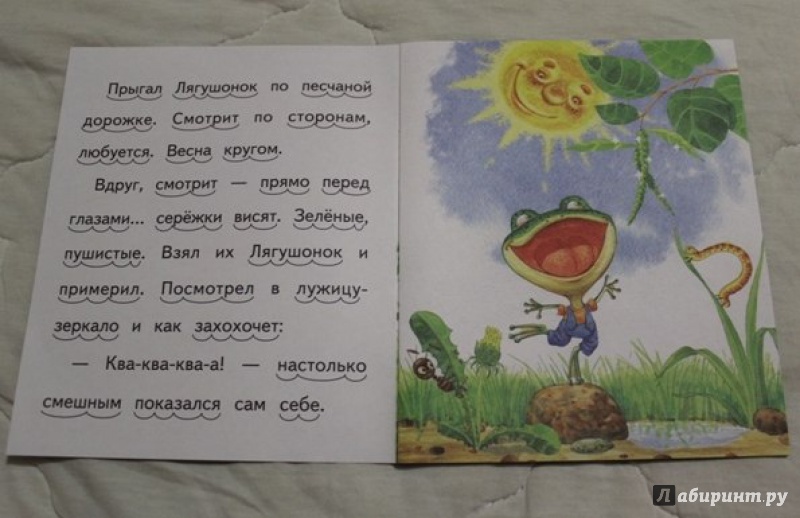 Прыгал Лягушонок по песчаной
дорожке. Смотрит по сторонам,
любуется. Весна кругом.
Вдруг, смотрит — прямо перед
глазами... серёжки висят. Зелёные,
пушистые. Взял их Лягушонок и
примерил. Посмотрел в лужицу-
зеркало и как захохочет:
— Ква-ква-ква-а! — настолько
смешным показался сам себе.
Лабиринт.ру